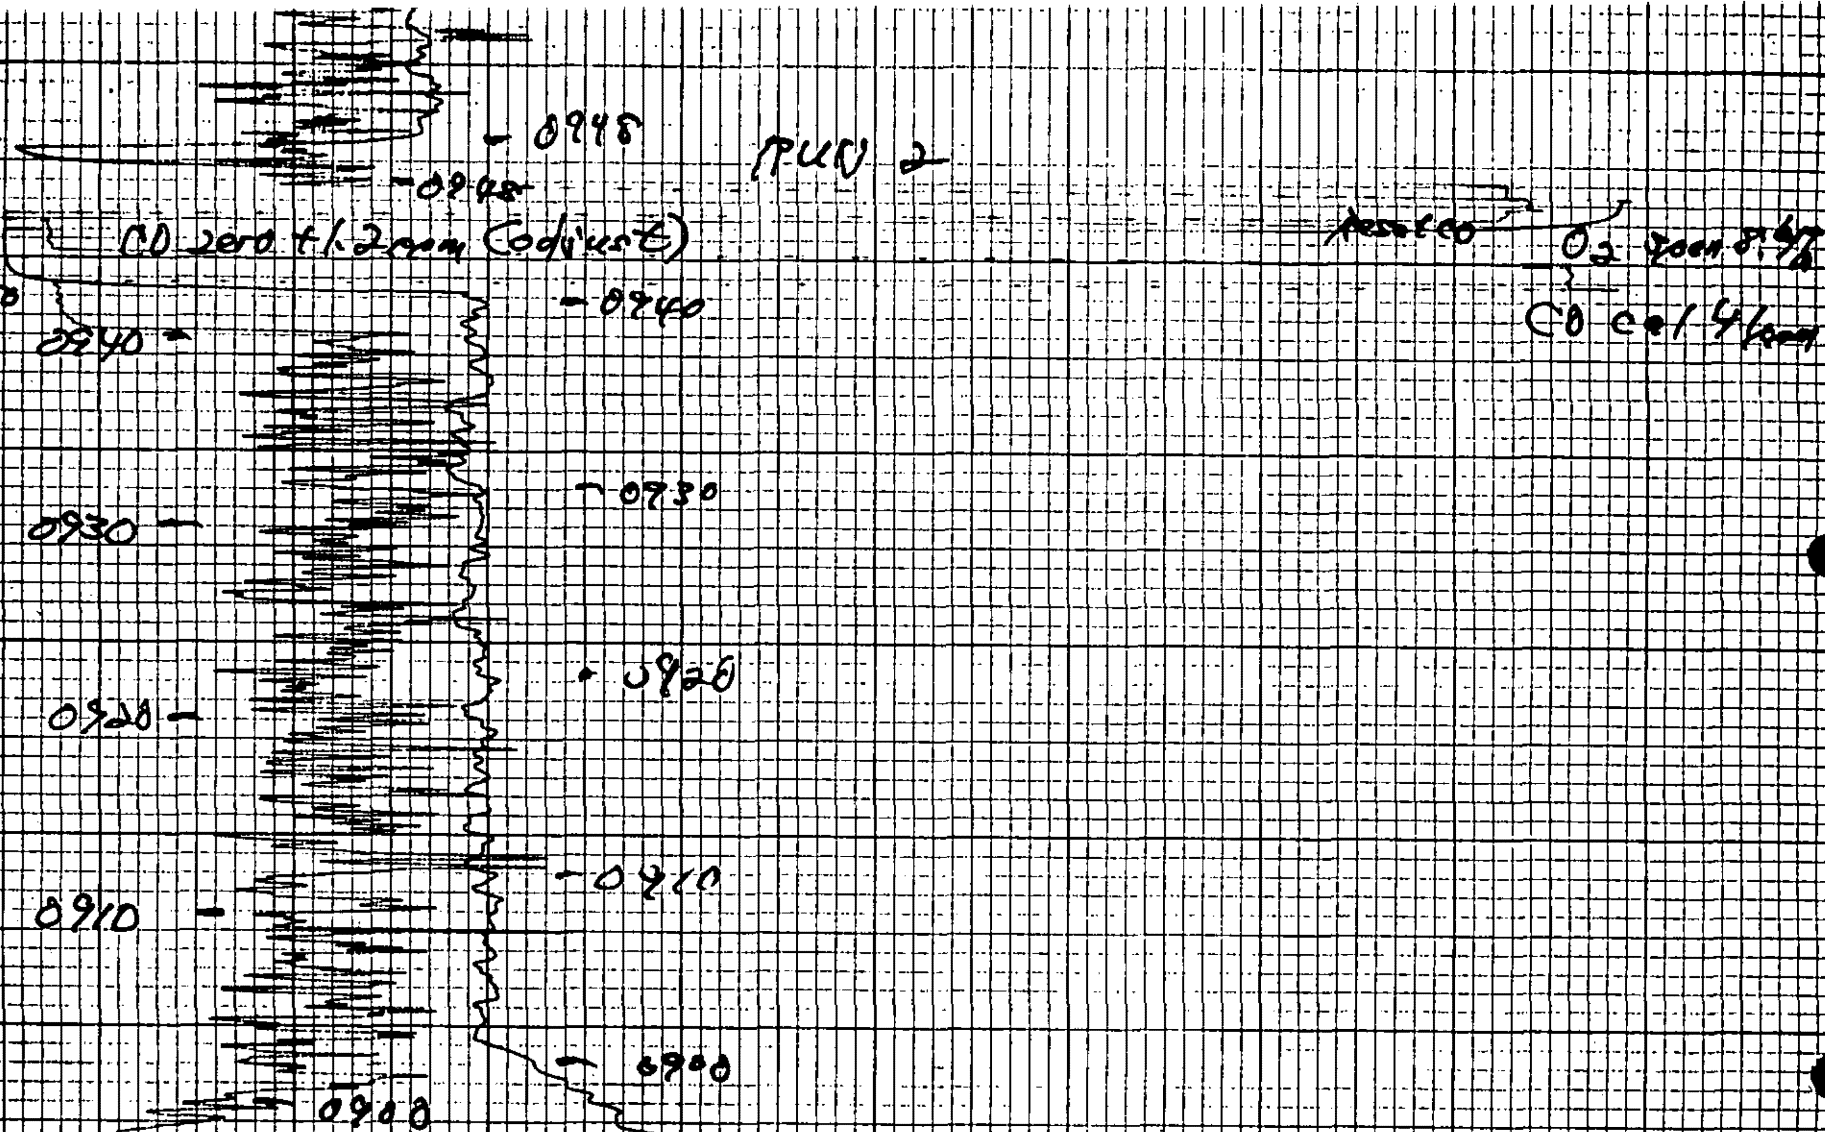 0948
RUN 2
0948
CO zero +1.2 ppm (adjust)
O2
0940
CO cal 41 ppm
0940
0930
0930
0920
0920
0910
0910
0900
0900